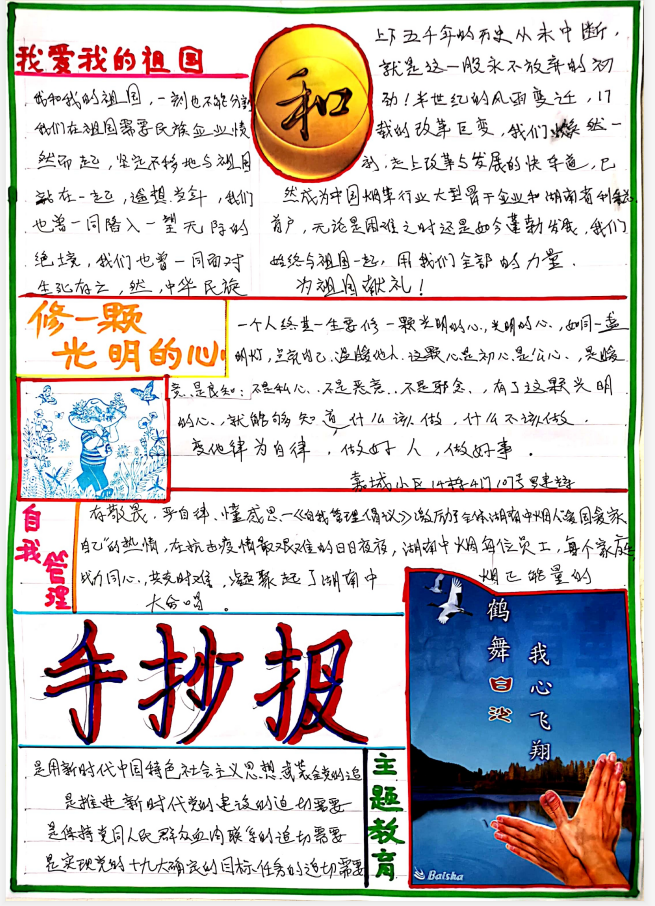 我爱我的祖国
我和我的祖国，一刻也不能分割
我们在祖国需要民族企业愤
然而起，坚定不移地与祖国
站在一起，遥想当年，我们
也曾一同陷入一望无际的
绝境，我们也曾一同面对
生死存亡，然，中华民族
和
上下五千年的历史从未中断，
就是这一股永不放弃的初
劲！半世纪的风雨变迁，17
载的改革巨变，我们焕然一
新，走上改革与发展的快车道，已
然成为中国烟草行业大型骨干企业和湖南省利税
首户，无论是困难之时还是如今蓬勃发展，我们
始终与祖国一起，用我们全部的力量．
为祖国献礼！
修一颗
光明的心
一个人终其一生要修一颗光明的心，光明的心，如同一盏
明灯，点亮自己、温暖他人．这颗心是初心、是公心、是暖
意、是良知；不是私心、不是恶意、不是邪念，有了这颗光明
的心、就能够知道什么该做，什么不该做．
变他律为自律，做好人，做好事．
嘉城小区14栋4门107号
自我管理
存敬畏、严自律、懂感恩—《自我管理倡议》激励了全体湖南中烟人爱国爱家
自己"的热情，在抗击疫情最艰难的日日夜夜，湖南中烟每位员工，每个家庭
战力同心、共克时难，凝聚起了湖南中烟正能量的
大合唱。
手抄报
是用新时代中国特色社会主义思想武装全党的迫
是推进新时代党的建设的迫切需要
是保持党同人民群众血肉联系的迫切需要
是实现党的十九大确定的目标任务的迫切需要
主题教育
鹤舞白沙
我心飞翔
Baisha